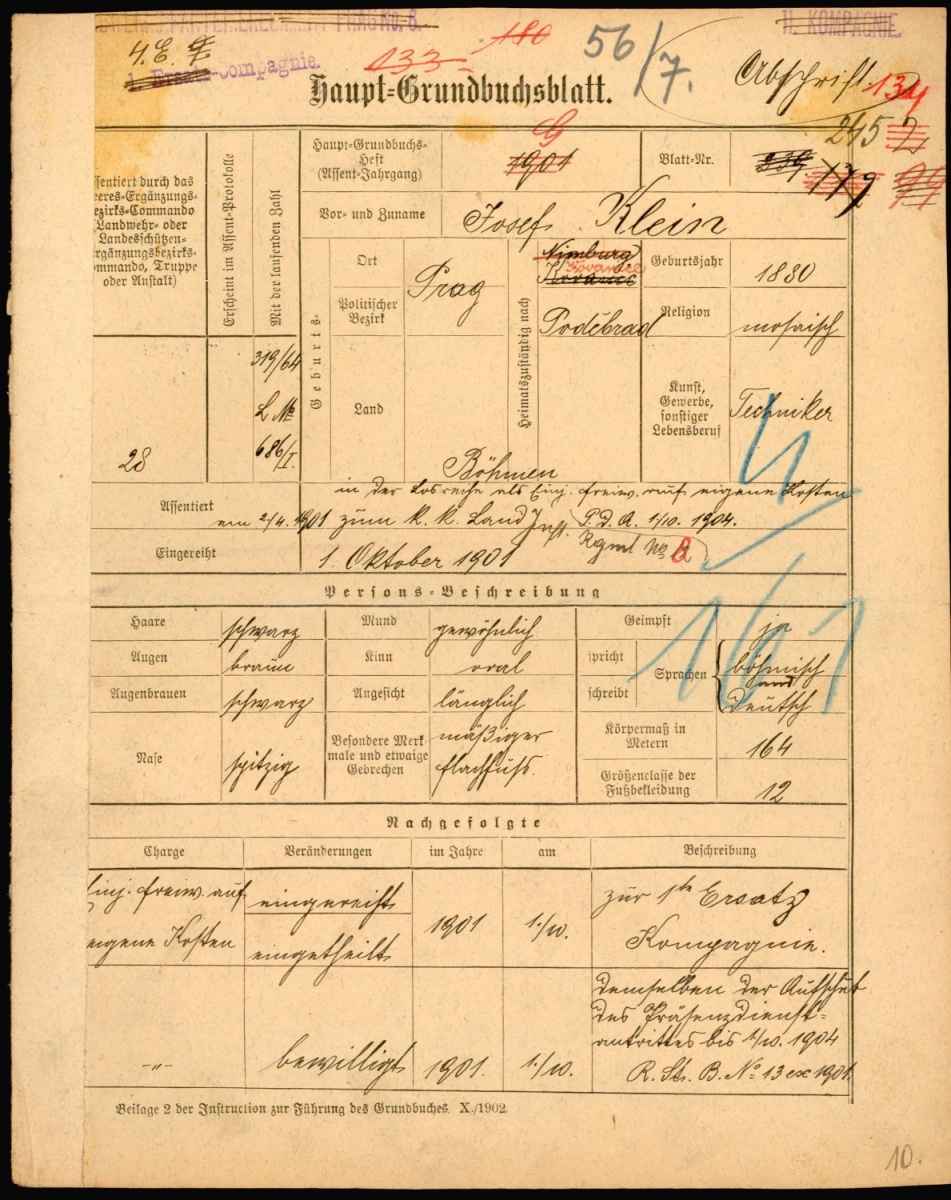 PRAG No. 8.
II. KOMPAGNIE.
4. E.
Ersatz-Compagnie.
133
180
56/7.
Abschrift.
134
Haupt=Grundbuchsblatt.
245
2
Haupt=Grundbuchs=
Heft
(Assent=Jahrgang)
1901
Blatt=Nr.
239
179
ssentiert durch das
eeres=Ergänzungs=
ezirks=Commando
Landwehr= oder
Landesschützen=
rgänzungsbezirks=
ommando, Truppe
oder Anstalt)
Erscheint im Assent=Protokolle
Mit der laufenden Zahl
Vor= und Zuname
Josef Klein
Geburts=
Ort
Politischer
Bezirk
Land
Prag
Heimatszuständig nach
Nimburg
Kovanec
Kovanec
Poděbrad
Böhmen
Geburtsjahr
1880
Religion
mosaisch
Kunst,
Gewerbe,
sonstiger
Lebensberuf
Techniker
28
319/64
L №
686/I.
Assentiert
in der Losreihe als Einj. freiw. auf eigene Kosten
am 2/4. 1901 zum k. k. Land Inft. P. d. A. 1/10. 1904.
Rgmt № 8
Eingereiht
1. Oktober 1901
Persons=Beschreibung
Haare
schwarz
Mund
gewöhnlich
Geimpft
ja
Augen
braun
Kinn
oval
spricht
schreibt
Sprachen
böhmisch
und
deutsch
Augenbrauen
schwarz
Angesicht
länglich
Nase
spitzig
Besondere Merk
male und etwaige
Gebrechen
mäßiger
flachfuss.
Körpermaß in
Metern
164
Größenclasse der
Fußbekleidung
12
Nachgefolgte
Charge
Veränderungen
im Jahre
am
Beschreibung
Einj. freiw. auf
eigene Kosten
eingereiht
eingetheilt
1901
1./10.
zur 1te Ersatz
Kompagnie.
-„-
bewilligt
1901.
1./10.
demselben der Aufschub
des Präsenzdienst=
antrittes bis 1/10. 1904
R. St. B. № 13 ex 1901.
Beilage 2 der Instruction zur Führung des Grundbuches. X./1902.
10.